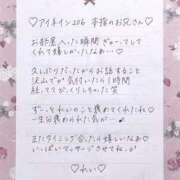 ♡アイネイン206 本指のお兄さん♡
お部屋入った瞬間ぎゅーってして
くれて嬉しかったぁ…♡
久しぶりだったからお話すること
沢山でが気付いたら1時間
経っててびっくりしちゃった笑
ずーっとれいのこと褒めてくれたくれ
一生分褒められた気分♡
またタイミング合ったら嬉しいなぁ♡
いっぱいマッサージさせてねっ♡
♡れい♡